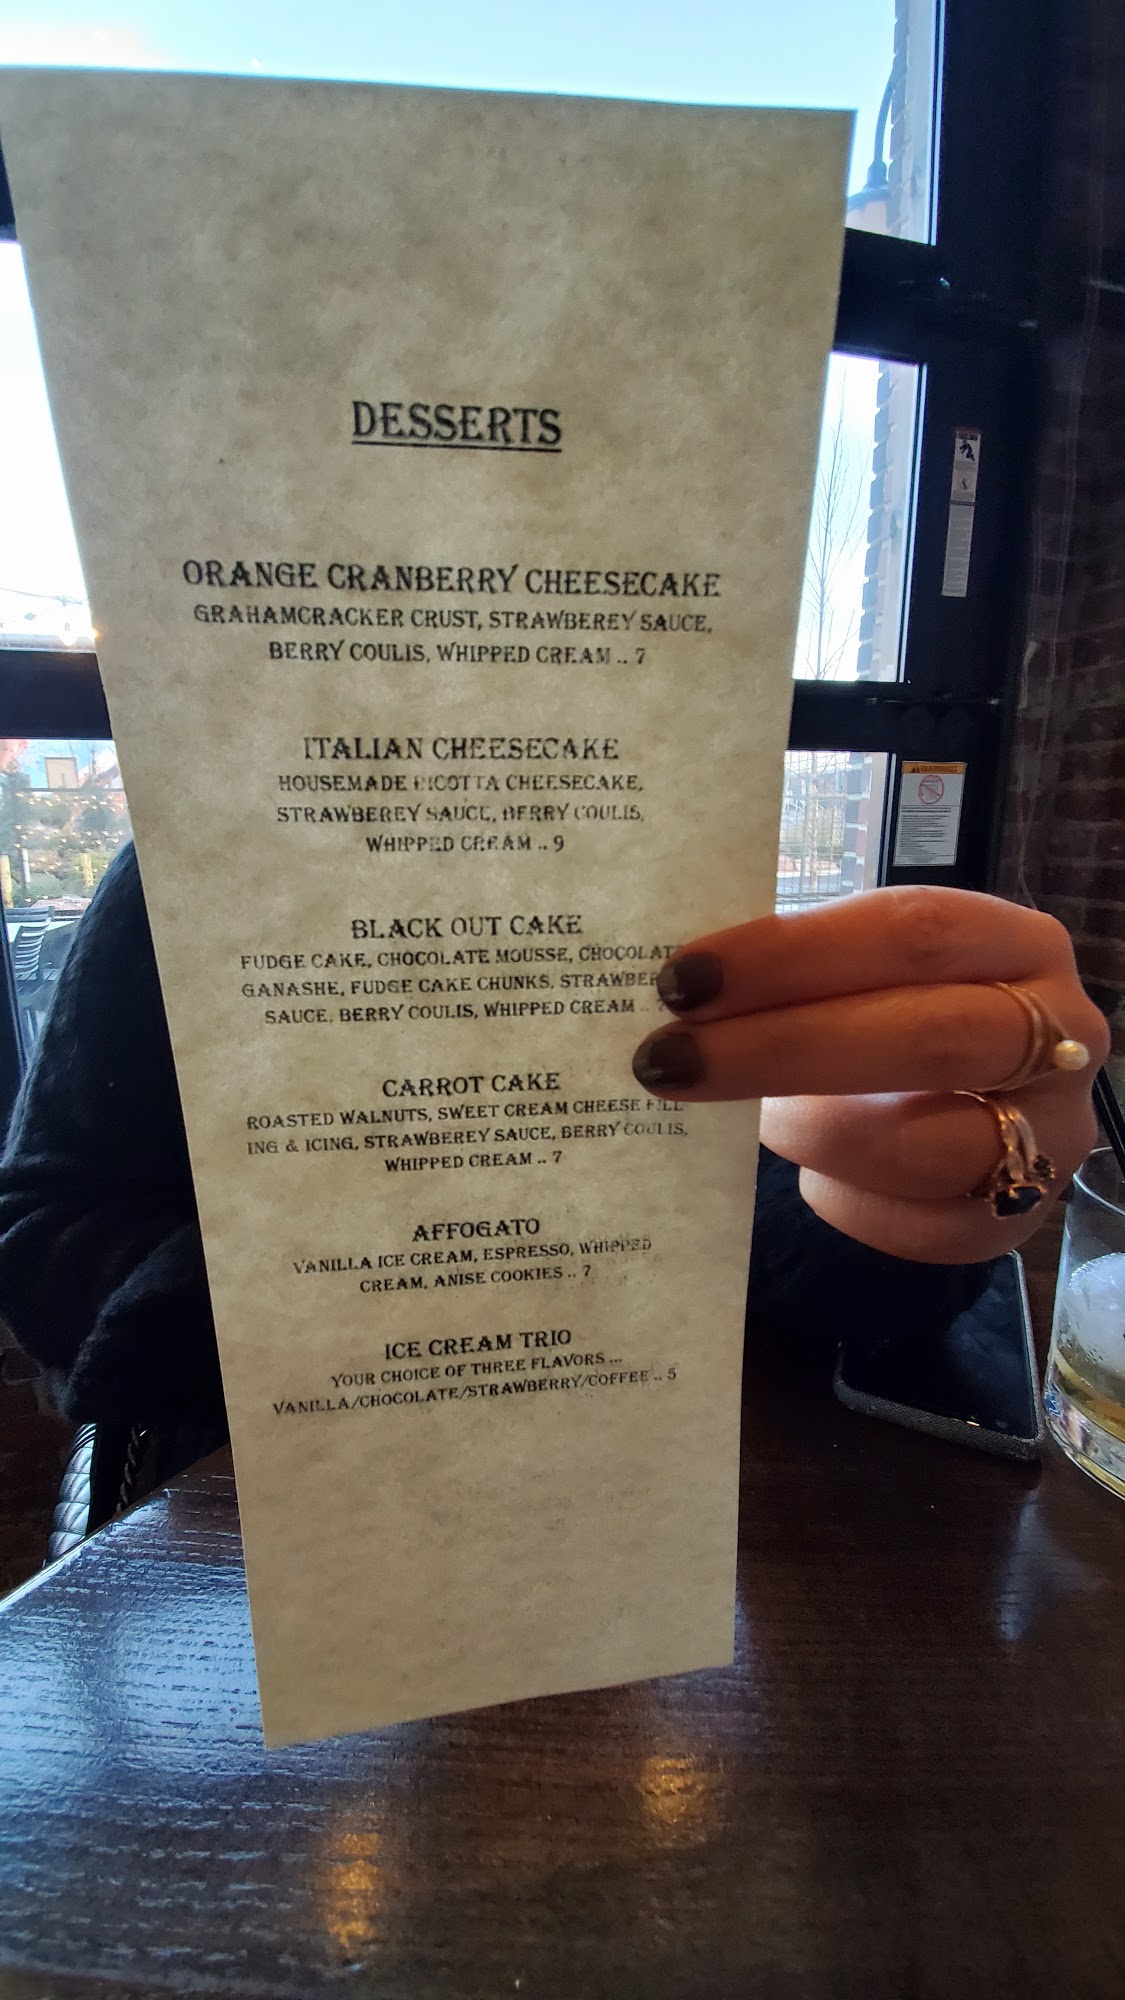 DESSERTS
ORANGE CRANBERRY CHEESECAKE
GRAHAMCRACKER CRUST, STRAWBEREY SAUCE,
BERRY COULIS, WHIPPED CREAM .. 7
ITALIAN CHEESECAKE
HOUSEMADE RICOTTA CHEESECAKE,
STRAWBEREY SAUCE, BERRY COULIS,
WHIPPED CREAM .. 9
BLACK OUT CAKE
FUDGE CAKE, CHOCOLATE MOUSSE, CHOCOLAT
GANASHE, FUDGE CAKE CHUNKS, STRAWBER
SAUCE, BERRY COULIS, WHIPPED CREAM .. 7
CARROT CAKE
ROASTED WALNUTS, SWEET CREAM CHEESE FILL-
ING & ICING, STRAWBEREY SAUCE, BERRY COULIS,
WHIPPED CREAM .. 7
AFFOGATO
VANILLA ICE CREAM, ESPRESSO, WHIPPED
CREAM, ANISE COOKIES .. 7
ICE CREAM TRIO
YOUR CHOICE OF THREE FLAVORS ...
VANILLA/CHOCOLATE/STRAWBERRY/COFFEE .. 5
WARNING